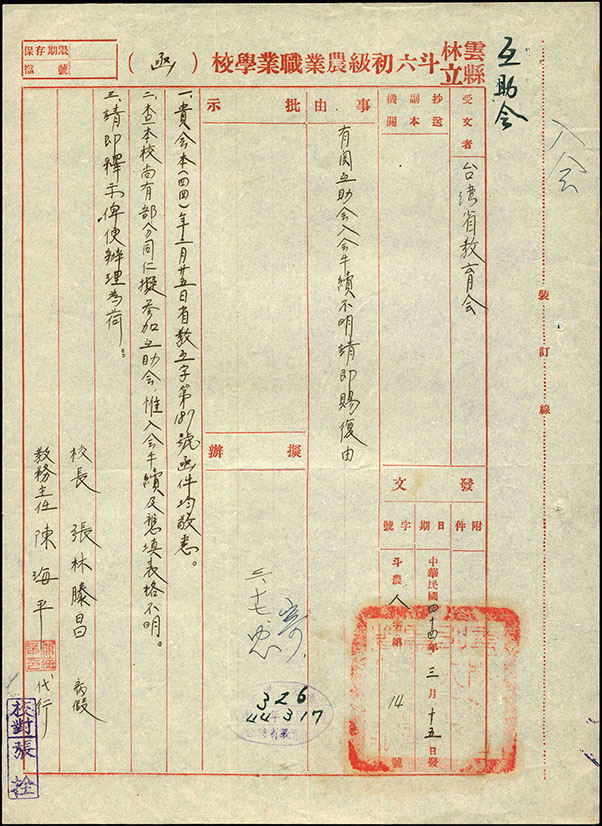 互助会
入会
裝訂線
雲林縣立斗六初級農業職業學校(函)
保存期限
檔號
受文者
台湾省教育会
抄送副本機關
事由
有関互助会入会手續不明請即賜復由
批示
擬辦
發文
附件
日期
中華民國四十四年三月十五日發
字號
斗農人字第14號
一、貴会本(四四)年二月廿五日省教互字第189號函件均敬悉。
二、查本校尚有部分同仁擬參加互助会,惟入会手續及應填表格不明。
三、請即釋示俾便辦理為荷。
校長 張林滕昌 病假
教務主任 陳海平 代行
校對張詮
326
44317
三、十七